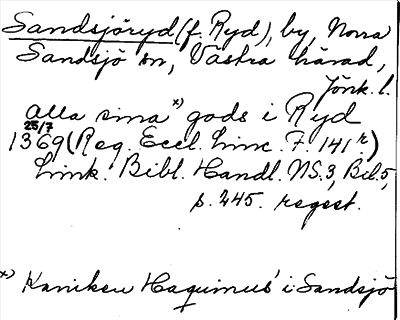 Sandsjöryd (f. Ryd), by, Norra
Sandsjö sn, Västra härad,
Jönk. l.
Alla sina x) gods i Ryd
25/7
1369 (Reg. Eccl. Linc. F. 141 r.)
Link. Bibl. Handl. NS.3, Bil.5,
p. 245. regest.
x) Kaniken Haquinus' i Sandsjö